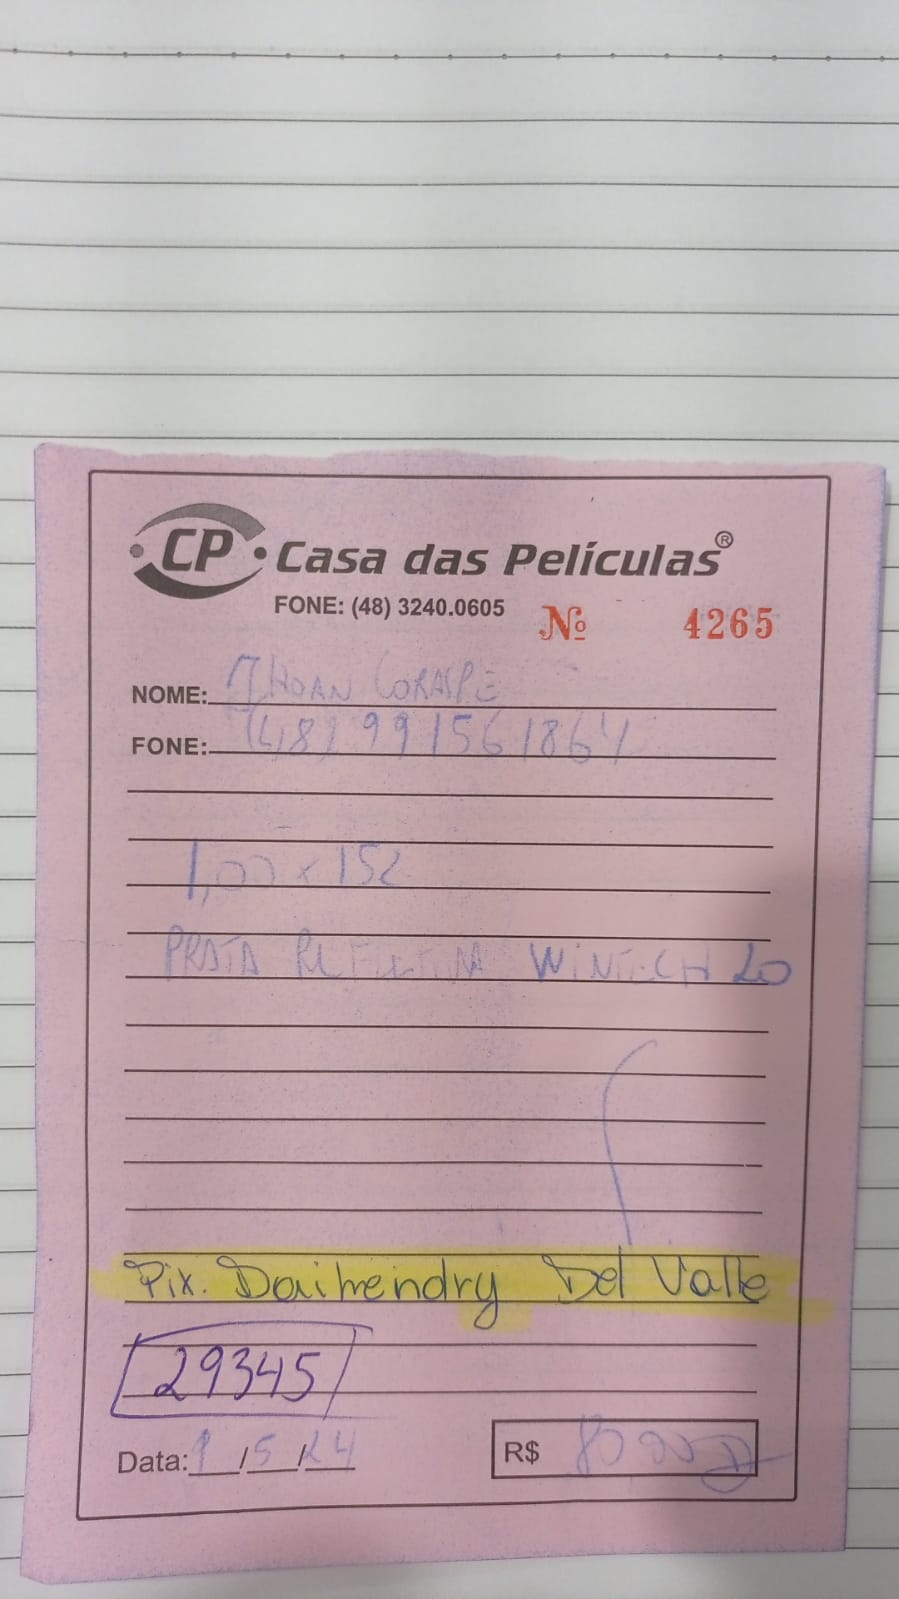 CP Casa das Películas®
FONE: (48) 3240.0605
Nº 4265
NOME: JHOAN CORASPE
FONE: (48) 991561864
1,00 x 152
PRATA REFLETIVA WINTECH 20
Pix. Daihendry Del Valle
29345
Data: 9/5/24
R$ 80,00